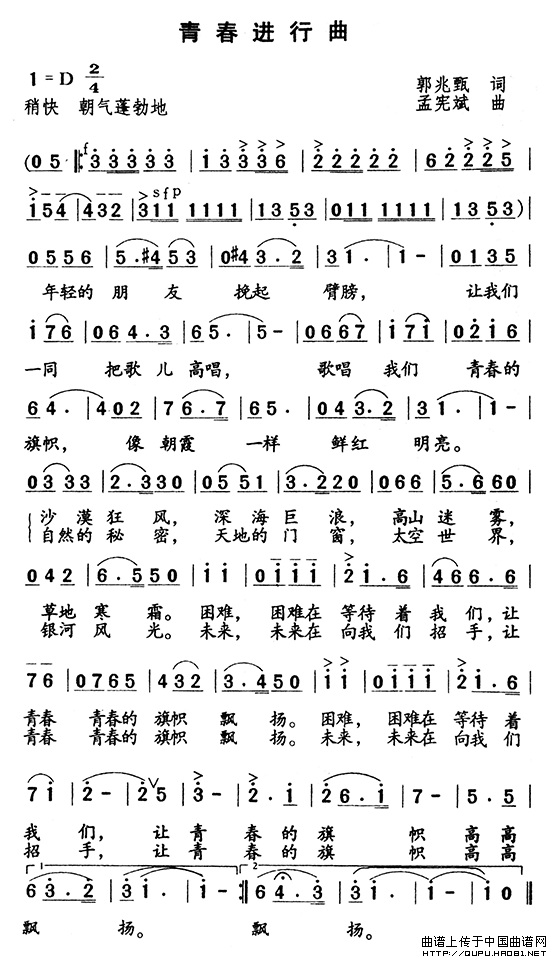 青春进行曲
1=D 2/4
郭兆甄 词
稍快 朝气蓬勃地
孟宪斌 曲
(0 5 f 3 3 3 3 3 | 1 3 3 3 6 | 2 2 2 2 2 | 6 2 2 2 5 |
1 5 4 | 4 3 2 | sfp 3 1 1 1 1 1 1 | 1 3 5 3 | 0 1 1 1 1 1 1 | 1 3 5 3) |
0 5 5 6 | 5 . #4 5 3 | 0 #4 3 . 2 | 3 1 . | 1 - | 0 1 3 5 |
年轻的 朋 友 挽起 臂膀， 让我们
1 7 6 | 0 6 4 . 3 | 6 5 . | 5 - | 0 6 6 7 | 1 7 1 | 0 2 1 6 |
一同 把歌 儿 高唱， 歌唱 我们 青春的
6 4 . | 4 0 2 | 7 6 . 7 | 6 5 . | 0 4 3 . 2 | 3 1 . | 1 - |
旗帜， 像 朝霞 一样 鲜红 明亮。
0 3 3 3 | 2 . 3 3 0 | 0 5 5 1 | 3 . 2 2 0 | 0 6 6 | 5 . 6 6 0 |
沙漠狂风， 深海巨浪， 高山迷雾，
自然的秘密， 天地的门窗， 太空世界，
0 4 2 | 6 . 5 5 0 | 1 1 | 0 1 1 1 | 2 1 . 6 | 4 6 6 . 6 |
草地寒霜。困难， 困难在 等待 着 我们，让
银河风光。未来， 未来在 向我 们 招手，让
7 6 | 0 7 6 5 | 4 3 2 | 3 . 4 5 0 | 1 1 | 0 1 1 1 | 2 1 . 6 |
青春 青春的 旗帜 飘扬。困难， 困难在 等待 着
青春 青春的 旗帜 飘扬。未来， 未来在 向我们
7 1 | 2 - | 2 5 V | 3 - | 2 . 1 | 2 6 . 1 | 7 - | 5 . 5 |
我们， 让青 春的旗 帜高高
招手，让青 春的旗 帜高高
1 2
6 3 . 2 | 3 1 . | 1 - :| 6 4 . 3 | 3 1 . | 1 - | 1 0 ||
飘 扬。 飘 扬。
曲谱上传于中国曲谱网
HTTP://QUPU.HAO81.NET